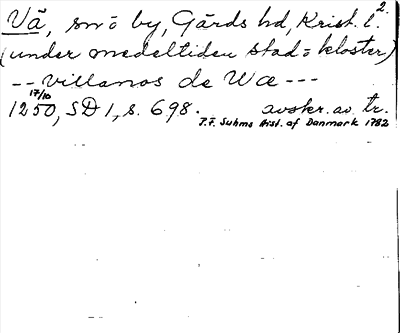 Vä, sn o by, Gärds hd, Krist. l.2
(under medeltiden stad o kloster)
-- villanos de Wæ ---
17/10
1250, SD 1, s. 698. avskr. av tr.
P.F. Suhms Hist. af Danmark 1782